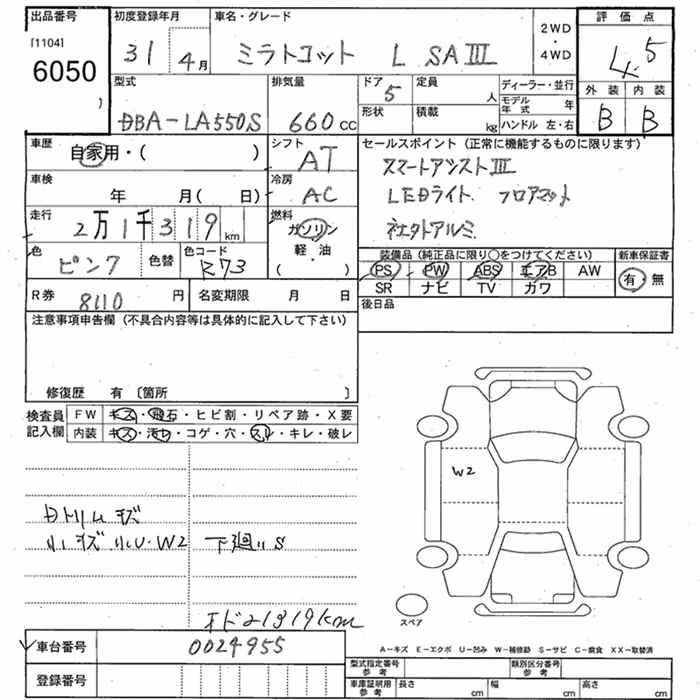 出品番号 初度登録年月 車名・グレード 2WD・4WD 評価点
[1104] 6050 31 4月 ミラトコット L SAⅢ 4.5
型式 排気量 ドア 5 定員 人 ディーラー・並行 外装 内装
DBA-LA550S 660cc 形状 積載 kg モデル年式 年 ハンドル 左・右 B B
車歴 自家用・( ) シフト AT セールスポイント(正常に機能するものに限ります)
車検 年 月( 日) 冷房 AC スマートアシストⅢ
LEDライト フロアマット
走行 2万1千319km 燃料 ガソリン 軽・油 ( )
社外アルミ
色 ピンク 色替 色コード R73 装備品(純正品に限り○をつけてください) 新車保証書
PS PW ABS エアB AW 有・無
SR ナビ TV カワ
R券 8110円 名変期限 月 日 後日品
注意事項申告欄(不具合内容等は具体的に記入して下さい)
修復歴 有 〔箇所 〕
検査員記入欄 FW キズ・飛石・ヒビ割・リペア跡・X要
内装 キズ・汚れ・コゲ・穴・スレ・キレ・破レ
W2
Dトリムキズ
小キズ小U・W2 下廻りS
オド21319km
スペア
A-キズ E-エクボ U-凹み W-補修跡 S-サビ C-腐食 XX-取替済
車台番号 0024955
型式指定番号 参考 類別区分番号 参考
登録番号
車庫証明用 参考 長さ cm 幅 cm 高さ cm